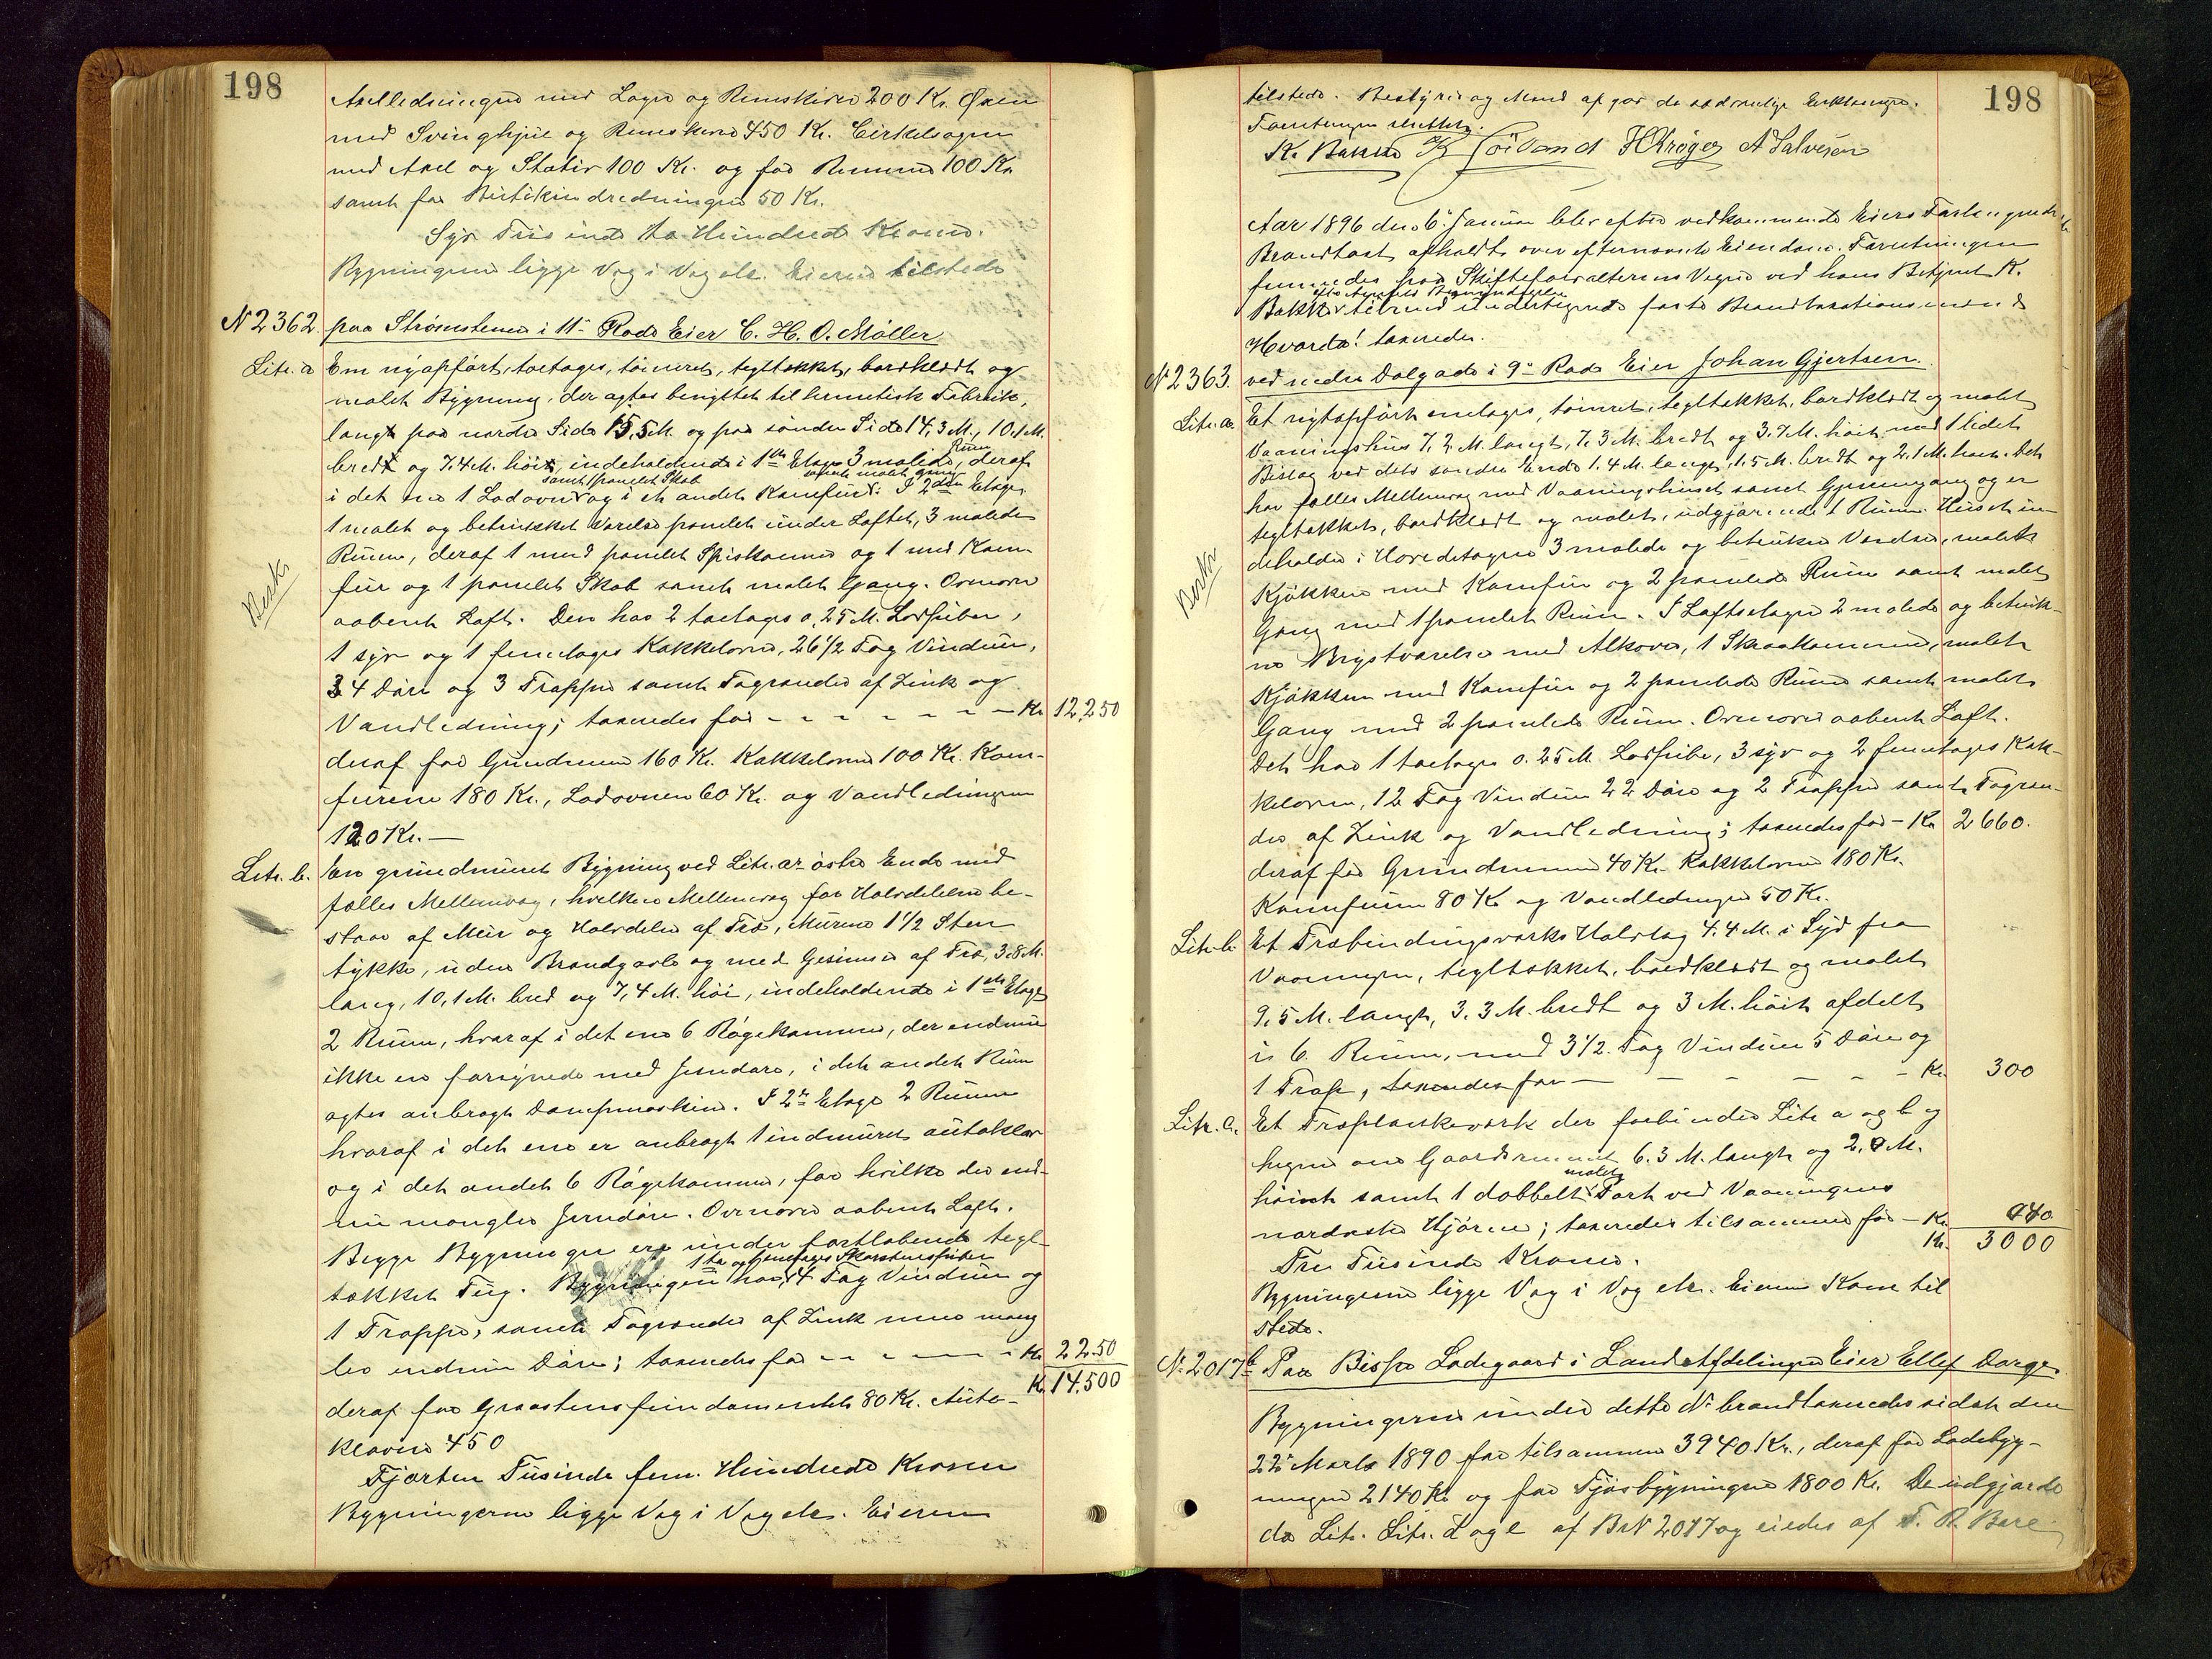 198
Axelledningen med Lager og Remskiver 200 Kr. Øxen
med Svinghjul og Remskive 450 Kr. Cirkelsagen
med Axel og Stativ 100 Kr. og for Remmene 100 Kr
samt for Butikindredningen 50 Kr.
Syv Tusinde to Hundrede Kroner.
Bygningerne ligge Væg i Væg etc. Eieren tilstede
N 2362. paa Strømstenen i 11te Rode Eier C. H. O. Møller
Litr. a En nyopført, toetages, tømret, teglтækket, bordklædt og
malet Bygning, der agtes benyttet til hermetisk Fabrik,
langt paa nordre Side 15,5 M. og paa søndre Side 14,3 M., 10,1 M.
bredt og 7,4 M. høit, indeholdende i 1ste Etage 3 malede Rum, deraf
samt 1 panelet Skab samt malet Gang
i det ene 1 Lodovn og i et andet Komfur. I 2den Etage
1 malet og betrukket Værelse panelet under Loftet, 3 malede
Rum, deraf 1 med panelet Spiskammer og 1 med Kom-
fur og 1 panelet Skab samt malet Gang. Ovenover
Besk
aabent Loft. Den har 2 toetages 0,25 M. Lodpiber,
1 syv og 1 femetages Kakkelovne, 26 1/2 Fag Vinduer,
34 Døre og 3 Trapper samt Tagrender af Zink og
Vandledning; taxeredes for - - - - - - Kr 12,250
deraf for Grundmuren 160 Kr. Kakkelovne 100 Kr. Kom-
furene 180 Kr., Lodovnen 60 Kr. og Vandledningen
120 Kr. —
Litr. b. En grundmuret Bygning ved Litr. a's østre Ende med
fælles Mellemvæg, hvilken Mellemvæg for Halvdelen be-
staar af Mur og Halvdelen af Træ, Murene 1 1/2 Sten
tykke, uden Brandgavle og med Gesimser af Træ, 3,8 M.
lang, 10,1 M. bred og 7,4 M. høi, indeholdende i 1ste Etage
2 Rum, hvoraf i det ene 6 Røgekammer, der endnu
ikke er forsynede med Jerndøre, i det andet Rum
agtes anbragt Dampmaskine. I 2den Etage 2 Rum
hvoraf i det ene er anbragt 1 indmuret autoklav
og i det andet 6 Røgekammer, for hvilke der end-
nu mangler Jerndøre. Ovenover aabent Loft.
Begge Bygninger ere under fortløbende tegl-
1 to og femetages Skorstenspiber
tækket Tag. Bygningen har 4 Fag Vinduer og
1 Trappe, samt Tagrender af Zink men mang
ler endnu Døre; taxeredes for - - - - - Kr 2250
Kr 14.500
deraf for Graastensfundamentet 80 Kr. Auto-
klaven 450
Fjorten Tusinde fem Hundrede Kroner
Bygningerne ligge Væg i Væg etc. Eieren
198
tilstede. Bestyrer og Mænd afgav de sædvanlige Erklæringer.
Forretningen sluttet.
K. Bakke HKrøger A Salvesen
Aar 1896 den 6te Januar blev efter vedkommende Eieres Forlangende
Brandtaxt afholdt over efternævnte Eiendomme. Forretningen
fremmedes paa Skifteforvalterens Vegne ved hans Betjent K.
Bakke tilligemed undertegnede faste Brandtaxationsmænd
Hvorda! taxeredes.
N 2363. ved nedre Dalgade i 9de Rode Eier Johan Gjertsen.
Litr. a. Et nyopført enetages, tømret, tegltækket, bordklædt og malet
Vaaningshus 7,2 M. langt, 7,3 M. bredt og 3,7 M. høit med 1 lidet
Bislag ved dets søndre Ende 1,4 M. langt, 1,5 M. bredt og 2,1 M. høit. Det
har fælles Mellemvæg med Vaaningshuset samt Gjennemgang og er
tegltækket, bordklædt og malet, udgjørende 1 Rum. Huset in-
deholder i Hovedetagen 3 malede og betrukne Værelser, malet
Beskr
Kjøkken med Komfur og 2 panelede Rum samt malet
Gang med 1 panelet Rum. I Loftsetagen 2 malede og betruk-
ne Brystværelser med Alkover, 1 Skraakammer, malet
Kjøkken med Komfur og 2 panelede Rum samt malet
Gang med 2 panelede Rum. Ovenover aabent Loft.
Det har 1 toetages 0.25 M. Lodpibe, 3 syv og 2 femetages Kak-
kelovne, 12 Fag Vinduer 22 Døre og 2 Trapper samt Tagren-
der af Zink og Vandledning; taxeredes for - Kr 2660.
deraf for Grundmuren 40 Kr. Kakkelovne 180 Kr.
Komfurene 80 Kr og Vandledningen 50 Kr.
Litr. b. Et Træbindingsværks Halvtag 4.4 M. i Syd fra
Vaaningen, tegltækket, bordklædt og malet
9,5 M. langt, 3.3 M. bredt og 3 M. høit afdelt
i 6 Rum, med 3 1/2 Fag Vinduer 5 Døre og
1 Trap, taxeredes for — — — — Kr. 300
Litr. c. Et Træplankeværk der forbinder Litr a og b og
hegner om Gaardsrummet 6.3 M. langt og 2,0 M.
høit samt 1 dobbelt malet Port ved Vaaningens
nordøstre Hjørne; taxeredes tilsammen for - Kr. 40
Kr. 3000
Tre Tusinde Kroner.
Bygningerne ligge Væg i Væg etc. Eieren Kom til
stede.
N. 2017b Paa Bispe Ladegaard i Landafdelingen Eier Ellef Dorge.
Bygningerne under dette N brandtaxeredes sidst den
22de Marts 1890 for tilsammen 3940 Kr., deraf for Ladebyg-
ningen 2140 Kr og for Fjøsbygningen 1800 Kr. De udgjorde
da Litr. Litr. d og e af Br N 2017 og eiedes af T. R. Bore